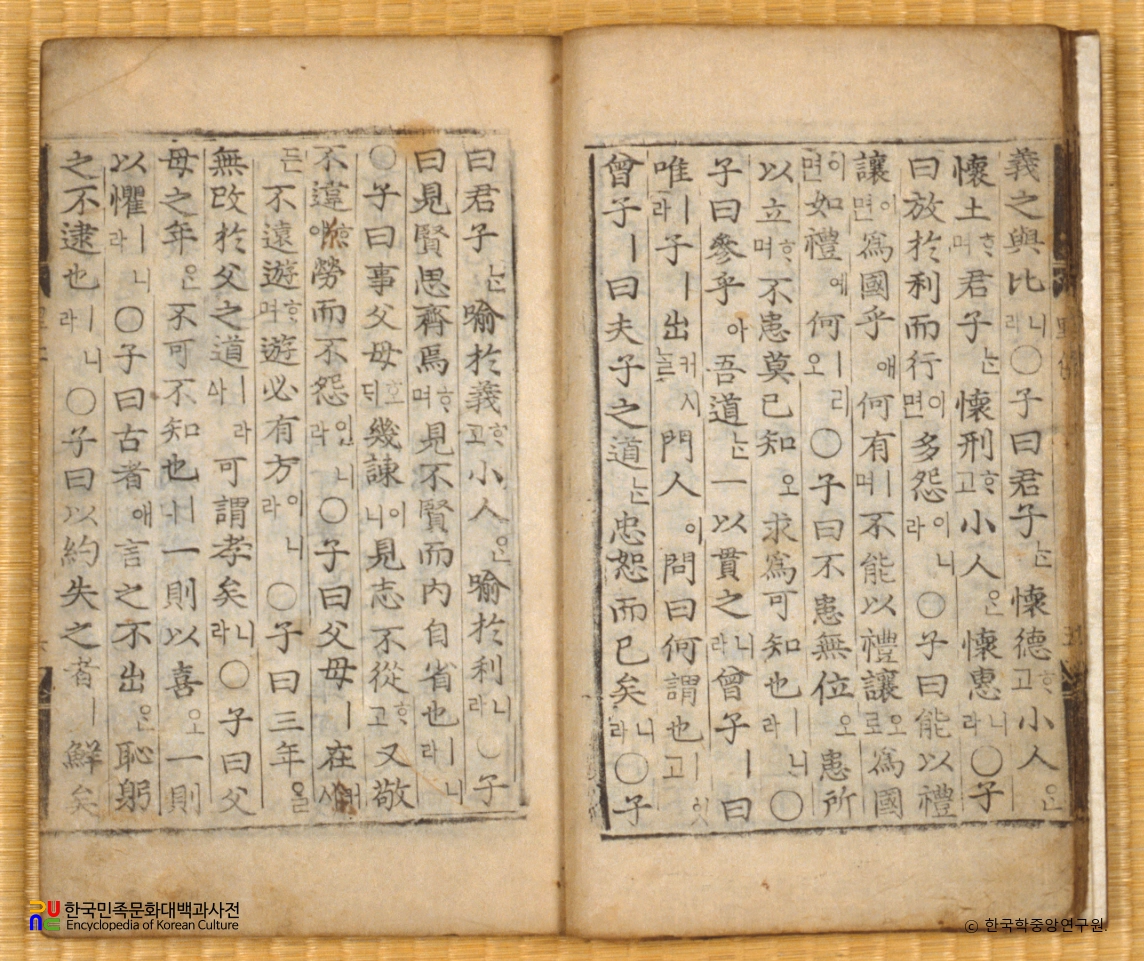 義之與比니라〇子曰君子ᄂᆞᆫ懷德ᄒᆞ고小人ᄋᆞᆫ
懷土ᄒᆞ며君子ᄂᆞᆫ懷刑ᄒᆞ고小人ᄋᆞᆫ懷惠니라〇子
曰放於利而行이면多怨이니라〇子曰能以禮
讓이면爲國乎애何有ㅣ며不能以禮讓오로爲國
이면如禮예何ㅣ리오〇子曰不患無位오患所
以立ᄒᆞ며不患莫己知오求爲可知也ㅣ니라〇
子曰參乎아吾道ᄂᆞᆫ一以貫之니라曾子ㅣ曰
唯ㅣ라子ㅣ出커시ᄂᆞᆯ門人이問曰何謂也ㅣ잇고
曾子ㅣ曰夫子之道ᄂᆞᆫ忠恕而已矣니라〇子
曰君子ᄂᆞᆫ喻於義ᄒᆞ고小人ᄋᆞᆫ喻於利니라〇子
曰見賢思齊焉ᄒᆞ며見不賢而內自省也ㅣ니라
〇子曰事父母호ᄃᆡ幾諫이니見志不從ᄒᆞ고又敬
不違ᄒᆞ야勞而不怨이니라〇子曰父母ㅣ在커시
든不遠遊ᄒᆞ며遊必有方이니라〇子曰三年을
無改於父之道ㅣ라아可謂孝矣니라〇子曰父
母之年ᄋᆞᆫ不可不知也ㅣ니一則以喜오一則
以懼ㅣ니라〇子曰古者애言之不出ᄋᆞᆫ恥躬
之不逮也ㅣ니라〇子曰以約失之者ㅣ鮮矣
한국민족문화대백과사전
Encyclopedia of Korean Culture
ⓒ 한국학중앙연구원.